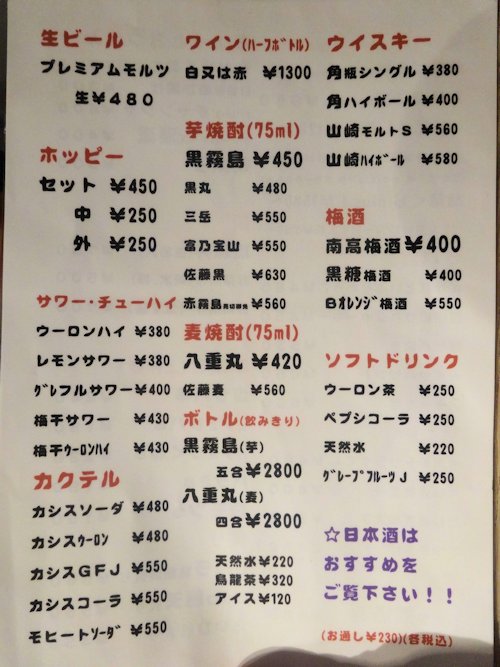 生ビール
プレミアムモルツ
生￥４８０
ホッピー
セット ￥450
中 ￥250
外 ￥250
サワー・チューハイ
ウーロンハイ ￥380
レモンサワー ￥380
ｸﾞﾚﾌﾙサワー ￥400
梅干サワー ￥430
梅干ｳｰﾛﾝﾊｲ ￥430
カクテル
カシスソーダ ￥480
カシスｳｰﾛﾝ ￥480
カシスＧＦＪ ￥550
カシスコーラ ￥550
モヒートｿｰﾀﾞ ￥550
ワイン(ﾊｰﾌﾎﾞﾄﾙ)
白又は赤 ￥1300
芋焼酎(75ml)
黒霧島 ￥450
黒丸 ￥480
三岳 ￥550
富乃宝山 ￥550
佐藤黒 ￥630
赤霧島 ￥560
麦焼酎(75ml)
八重丸 ￥420
佐藤麦 ￥560
ボトル(飲みきり)
黒霧島(芋)
五合￥2800
八重丸(麦)
四合￥2800
天然水￥220
烏龍茶￥320
アイス￥120
ウイスキー
角瓶シングル ￥380
角ハイボール ￥400
山崎モルトＳ ￥560
山崎ﾊｲﾎﾞｰﾙ ￥580
梅酒
南高梅酒￥400
黒糖梅酒 ￥400
Ｂｵﾚﾝｼﾞ梅酒 ￥550
ソフトドリンク
ウーロン茶 ￥250
ペプシコーラ ￥250
天然水 ￥220
ｸﾞﾚｰﾌﾟﾌﾙｰﾂＪ ￥250
☆日本酒は
おすすめを
ご覧下さい！！
(お通し￥230)(各税込)